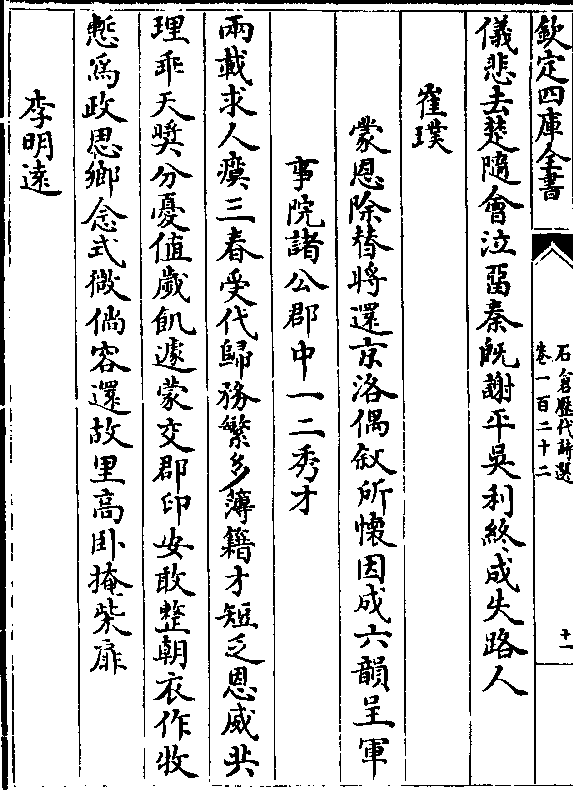 欽定四庫全書
石倉歷代詩選
卷一百二十二
十一
儀悲去楚隨會泣留秦既謝平吳利終成失路人
崔璞
蒙恩除替將還京洛偶叙所懷因成六韻呈軍
事院諸公郡中一二秀才
兩載求人瘼三春受代歸務繁多簿籍才短乏恩威共
理乖天奬分憂值歲飢遽蒙交郡印安敢整朝衣作牧
慙為政思鄉念式微倘容還故里高卧掩柴扉
李明遠